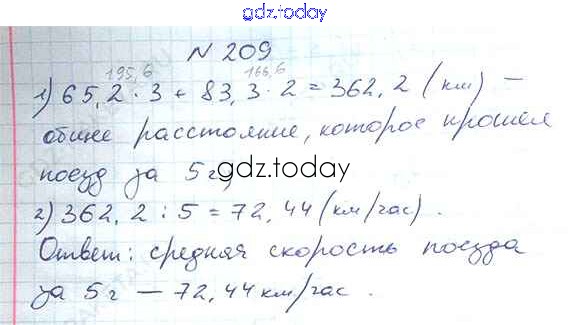 gdz.today
N 209
195,6 166,6
1) 65,2 · 3 + 83,3 · 2 = 362,2 (км) –
общее расстояние, которое прошёл
поезд за 5 г
gdz.today
2) 362,2 : 5 = 72,44 (км/час).
Ответ: средняя скорость поезда
за 5 г — 72,44 км/час.